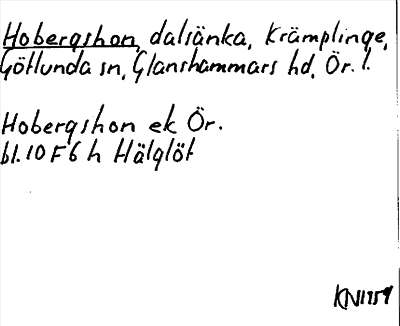 Hobergshon, dalsänka, Krämplinge,
Götlunda sn, Glanshammars hd, Ör. l.
Hobergshon ek Ör.
bl. 10 F 6 h Hälglöt
KN1959